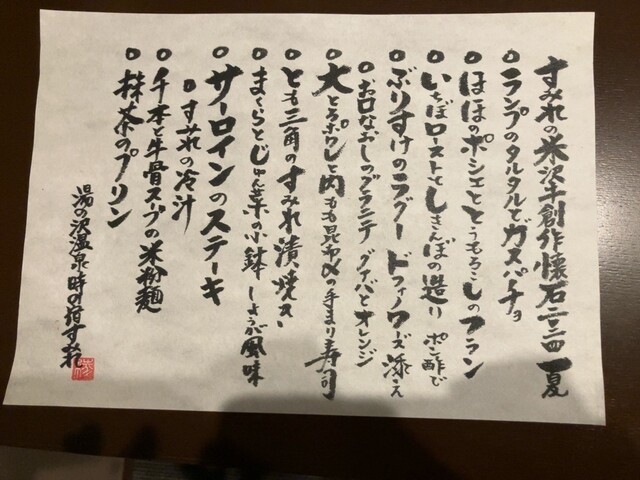 すみれの米沢牛創作懐石二〇二四 夏
○ランプのタルタルとガスパチョ
○ほほのポシェととうもろこしのフラン
○いちぼローストとしきんぼの造り ポン酢で
○ぶりすけのラグー ドフィノワーズ添え
○お口なおしのグラニテ グァバとオレンジ
○大とろポワレと肉もも昆布〆の手まり寿司
○とも三角のすみれ漬焼き
○まくらとじゅん菜の小鉢 しょうが風味
○サーロインのステーキ
○すみれの冷汁
○千本と牛骨スープの米粉麺
○抹茶のプリン
湯の沢温泉時の宿すみれ